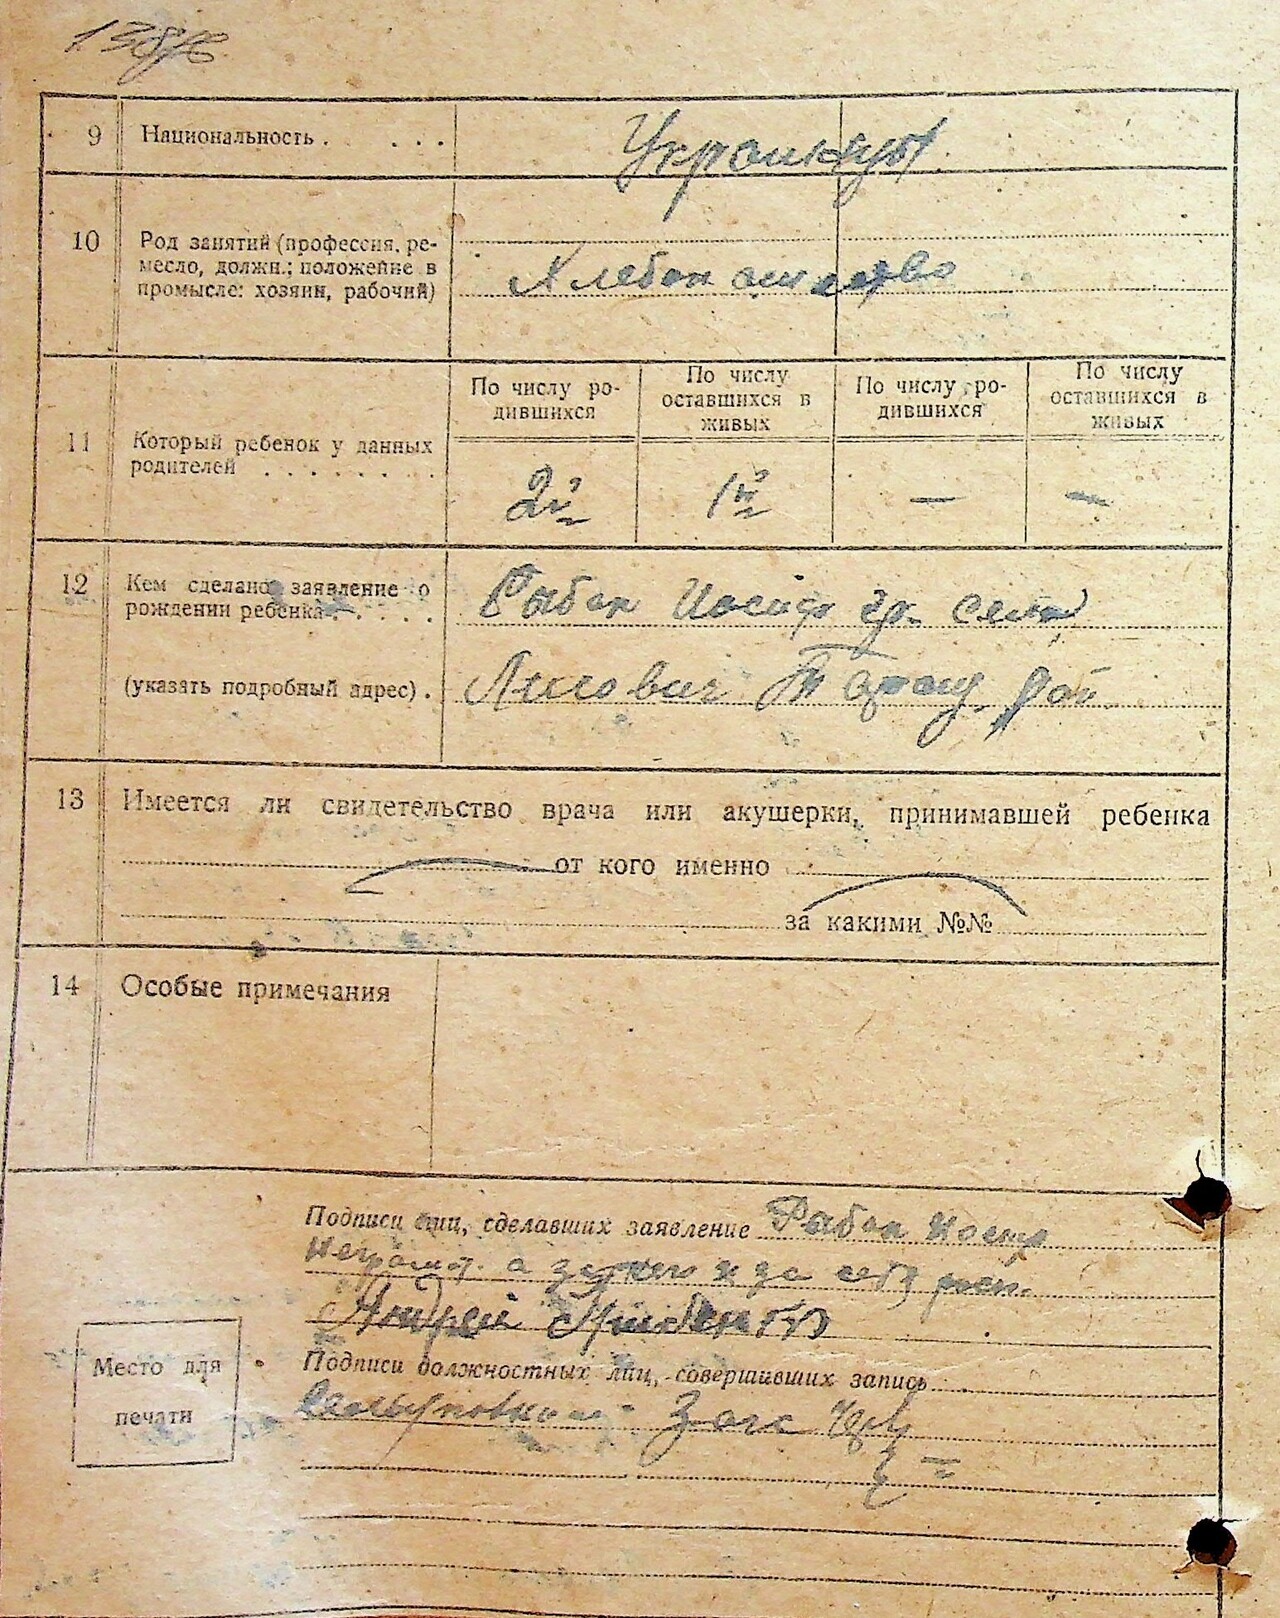 138
9 Национальность . . . .
Украинцы
10 Род занятий (профессия, ре-
месло, должн.; положение в
промысле: хозяин, рабочий)
Хлебопашество
По числу ро-
дившихся
По числу
оставшихся в
живых
По числу ро-
дившихся
По числу
оставшихся в
живых
11 Который ребенок у данных
родителей . . . . . . .
2й 1й — —
12 Кем сделано заявление о
рождении ребенка . . . . .
Рабок Иосиф гр. села
(указать подробный адрес) .
Лисович Таращ. рай.
13 Имеется ли свидетельство врача или акушерки, принимавшей ребенка
от кого именно
за какими №№
14 Особые примечания
Подписи лиц, сделавших заявление Рабок Иосиф
неграмот. а за него и за себя расп.
Андрей
Место для
печати
Подписи должностных лиц, совершивших запись